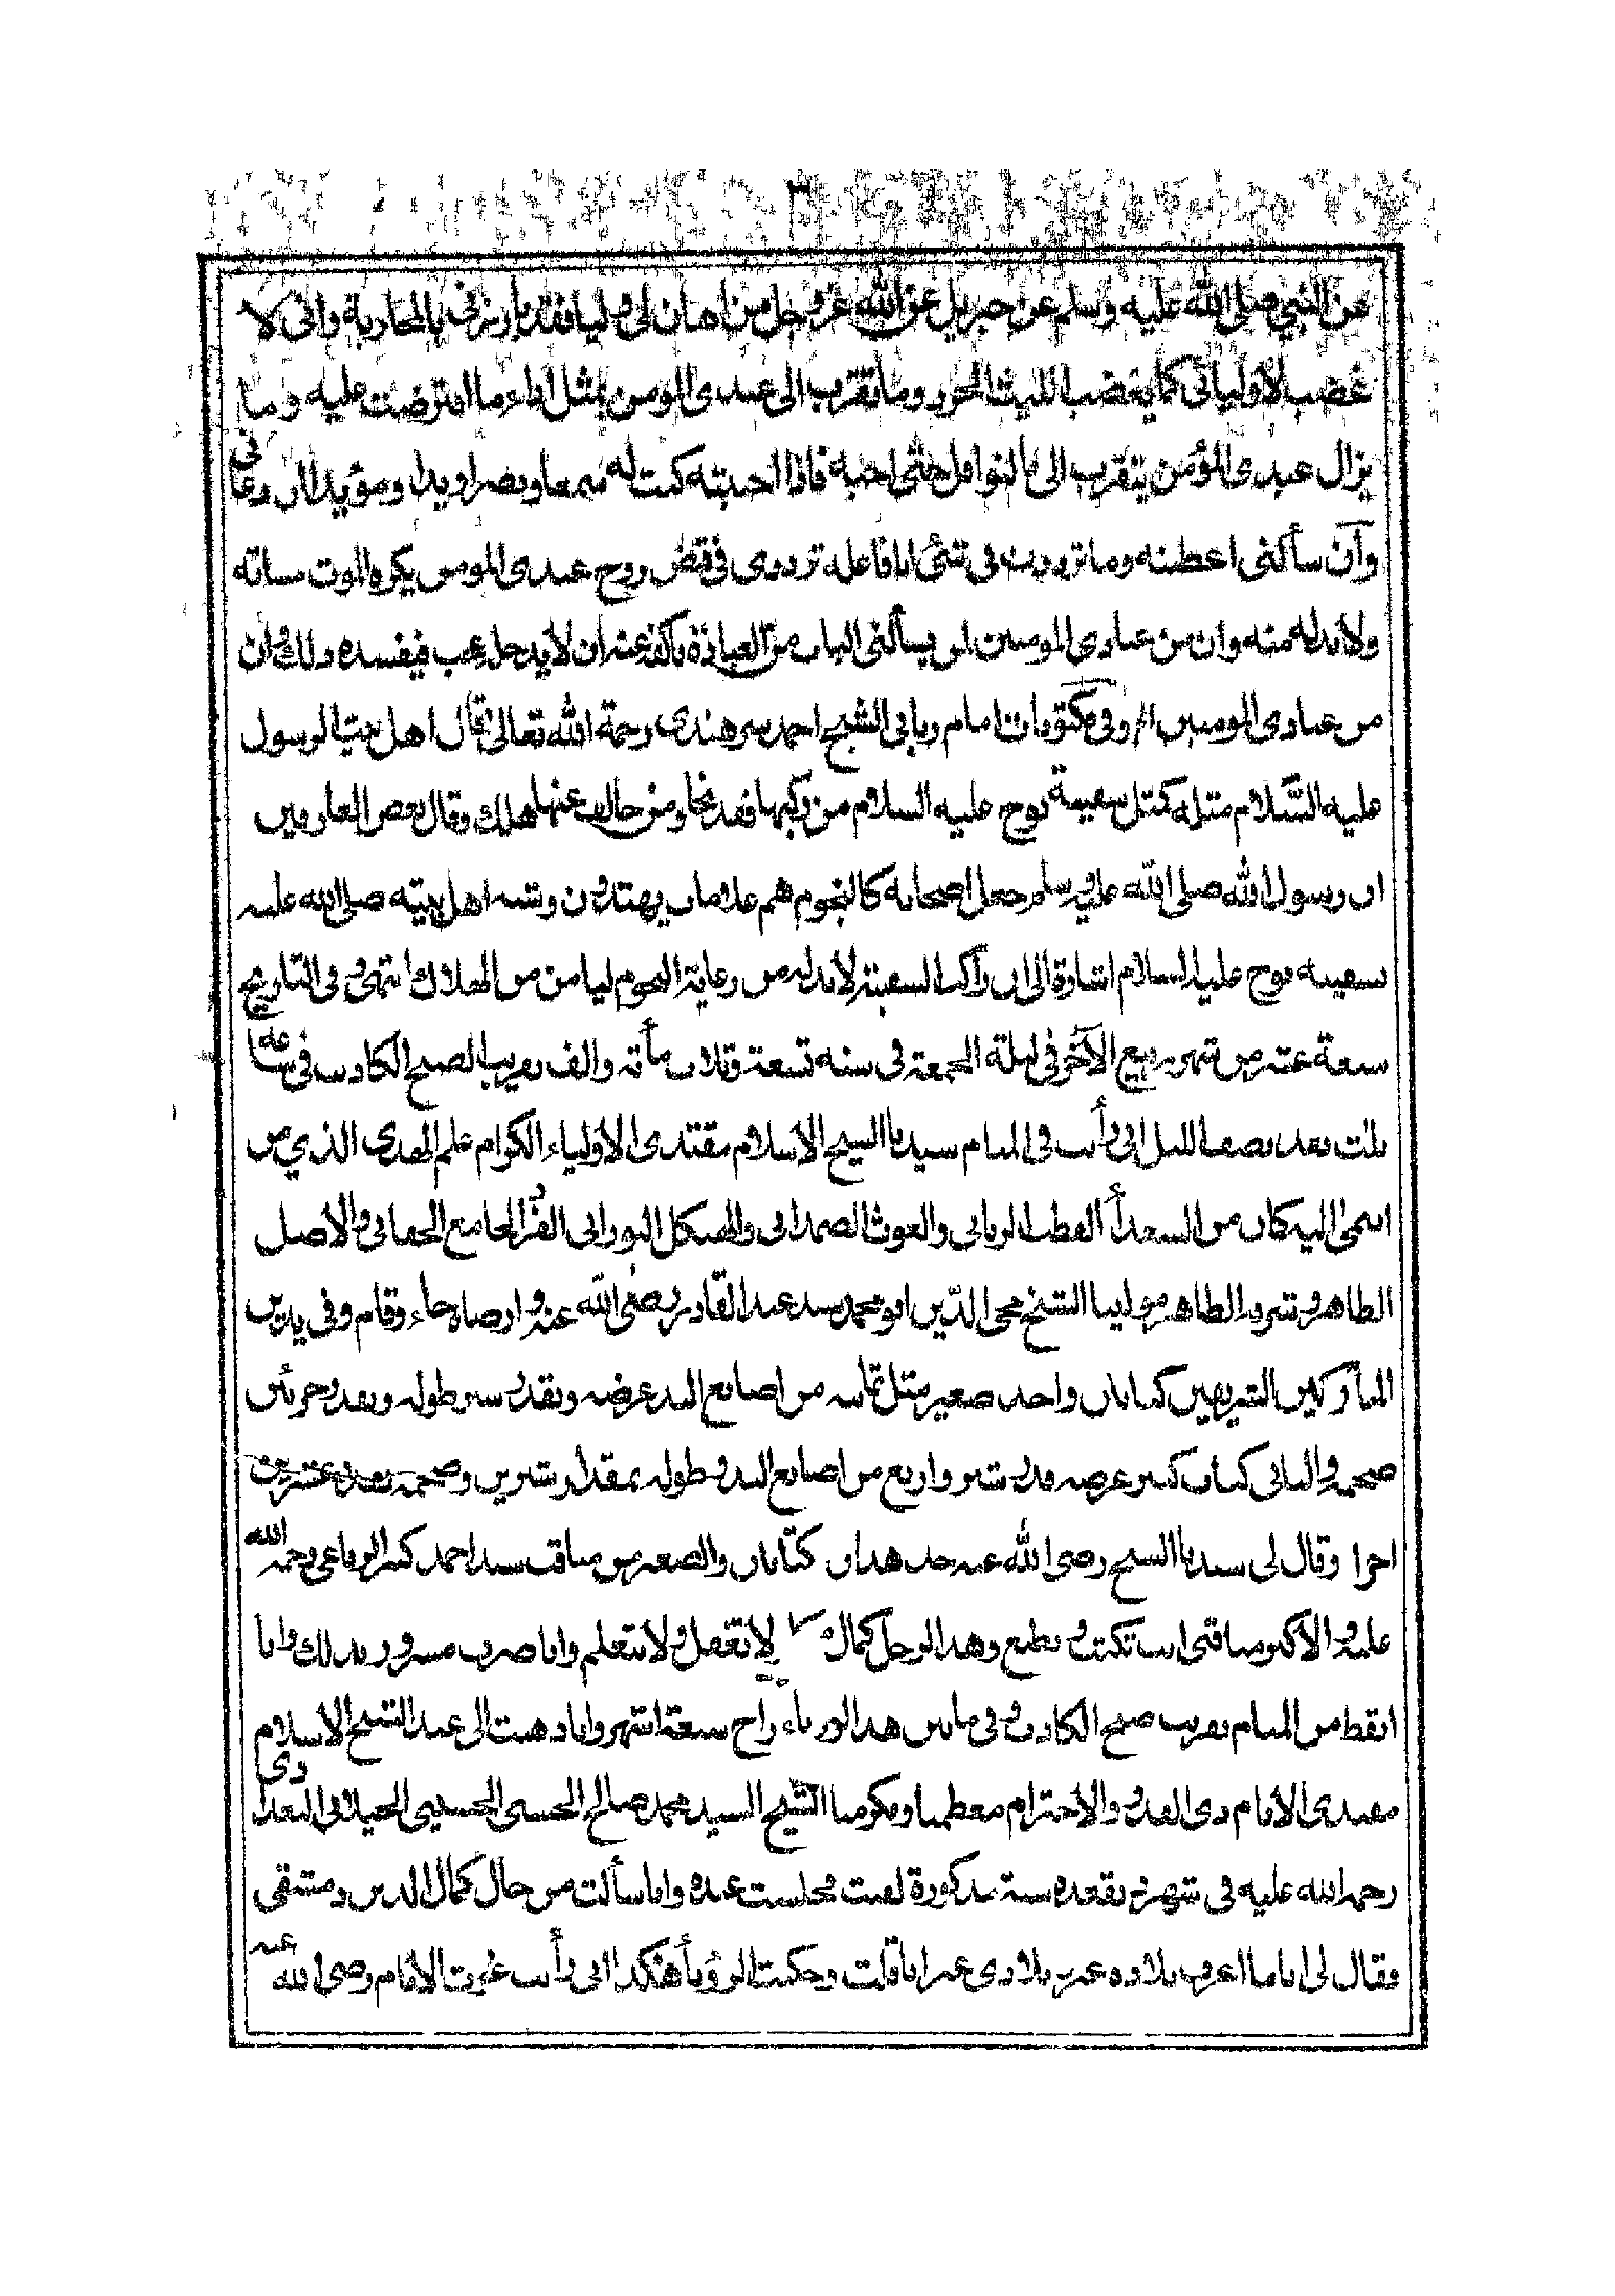 ٣
عن النبي صلى الله عليه وسلم عن جبريل عن الله عز وجل من اهان لى وليا فقد بارزني بالمحاربة وانى لا
غضب لاوليائى كما يغضب الليث الحرد وما تقرب الى عبدى المومن بمثل اداء ما افترضت عليه وما
يزال عبدى المؤمن يتقرب الى بالنوافل حتى احبه فاذا احببته كنت له سمعا وبصرا ويدا ومؤيدا ان دعانى
وآن سألنى اعطيته وما ترددت فى شئ انا فاعله ترددى فى قبض روح عبدى المومن يكره الموت مساته
ولا بد له منه وان من عبادى المومنين لمن يسألنى الباب من العبادة فاكفه عنه ان لا يدخله عجب فيفسده ذلك وان
من عبادى المومنين الخ وفى مكتوبات امام ربانى الشيخ احمد سرهندى رحمة الله تعالى قال اهل بيت الرسول
عليه السّلام مثله كمثل سفينة نوح عليه السلام من ركبها فقد نجا ومن خالف عنها هلك وقال بعض العارفين
ان رسول الله صلى الله عليه وسلم جعل اصحابه كالنجوم هم علامات يهتدون وشبه اهل بيته صلى الله عليه
سفينه نوح عليه السلام اشارة الى ان راكب السفينة لابد له من رعاية النجوم ليامن من الهلاك انتهى وفى التاريخ
سبعة عشر من شهر ربيع الآخر فى ليلة الجمعة فى سنه تسعة وثلاث مأته والف بقريب الصبح الكاذب فى ساعة
ثلث بعد نصف الليل انى رأيت فى المنام سيدنا الشيخ الاسلام مقتدى الاولياء الكرام علم الهدى الذي من
انتمى اليه كان من السعدأ القطب الربانى والغوث الصمدانى والهيكل النورانى الفرد الجامع الحقانى والاصل
الطاهر وشريف الطاهر مولينا الشيخ محى الدّين ابو محمد سيد عبد القادر رضى الله عنه وارضاه جاء وقام وفى يديه
المبأركين الشريفين كتابان واحد صغير مثل ثمانيه من اصابع اليد عرضه وبقدر شبر طوله وبقدر جزئين
صخمه والثانى كتاب كبير عرضه قدر شبر واربع من اصابع اليد وطوله بمقدار شبرين وضخمه بقدر عشرين
اجزا وقال لى سيدنا الشيخ رضى الله عنه خذ هذان كتابان والصغير من مناقب سيد احمد كبير الرفاعى رحمة الله
عليه والاكبر مناقبى انت تكتب وتطبع وهذا الرجل كمال لا تغفل ولا تتعلم وانا صرت مسرور بذلك وانا
انقط من المنام بقريب صبح الكاذب وفى مابين هذا الورياء راح سبعة اشهر وانا ذهبت الى عند الشيخ الاسلام
مقتدى الانام ذى القدر والاحترام معظمنا ومكرمنا الشيخ السيد محمد صالح الحسنى الحسينى الجيلانى البغدادى
رحمة الله عليه فى شهر ذيقعده سنة مذكورة لقيت وجلست عنده وانا سألت من حال كمال الدين دمشقى
فقال لى انا ما اعرف بلاده غير بلادى غير انا قلت وحكيت الرؤيا هكذا انى رأيت غوث الانام رضى الله عنه